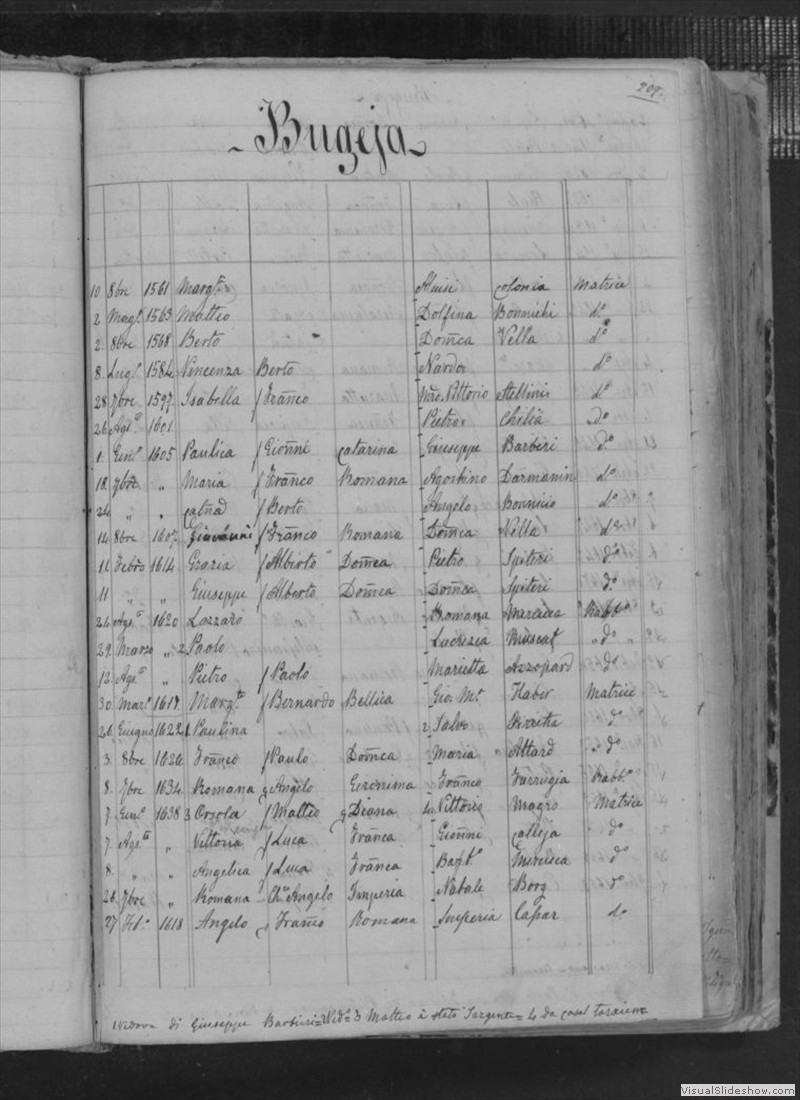 209.
Bugeja
10 8bre 1561 Marg.ta Aluisi Colonia Matrice
2 Magg.o 1563 Matteo Dolfina Bonnichi d.o
2 8bre 1568 Berto Dom̃ca Vella d.o
8 Lugl. 1584 Vincenza Berto Nardo d.o
28 7bre 1597 Isabella f Franco Vittorio Stellinis d.o
26 Ag.o 1601 Pietro Chilia d.o
1 Gen.o 1605 Paulica f Gioñni Catarina Giuseppe Barberi d.o
18 7bre " Maria f Franco Romana Agostino Darmanin d.o
24 " " Catñad f Berto Angelo Bonnicio d.o
14 8bre 1607 Giovanni f Franco Romana Dom̃ca Vella d.o
11 Febro 1614 Grazia f Alberto Dom̃ca Pietro Spiteri d.o
11 " " Giuseppe f Alberto Dom̃ca Dom̃ca Spiteri d.o
24 Ag.o 1620 Lazzaro Romana Rabb.o
29 Marzo " 2 Paolo Lucrezia Muscat " d.o
12 Ag.o " Pietro f Paolo Marietta Azzopard d.o
30 Mar.o 1617 Marg.ta f Bernardo Bellica Gio. M.a Haber Matrice
26 Giugno 1622 1 Paulina 2 Salvo d.o
3 8bre 1626 Franco f Paulo Dom̃ca Maria Attard " d.o
8 7bre 1634 Romana g Angelo Geronima Franco Farrugia Rabb.o
7 Gen.o 1638 3 Orsola f Matteo g Diana 4 Vittorio Magro Matrice
7 Ag.o " Vittoria f Luca Franca Gioñni Calleja d.o
8 " " Angelica f Luca Franca Batt.a Mercieca d.o
26 7bre " Romana Ch.o Angelo Imperia Natale Borg d.o
27 Feb.o 1618 Angelo g Franco Romana Imperia Capar d.o
1 vedova di Giuseppe Barbieri = 2 Vid.o 3 Matteo è stato Sargente = 4 da Casal Tarxien =
VisualSlideshow.com